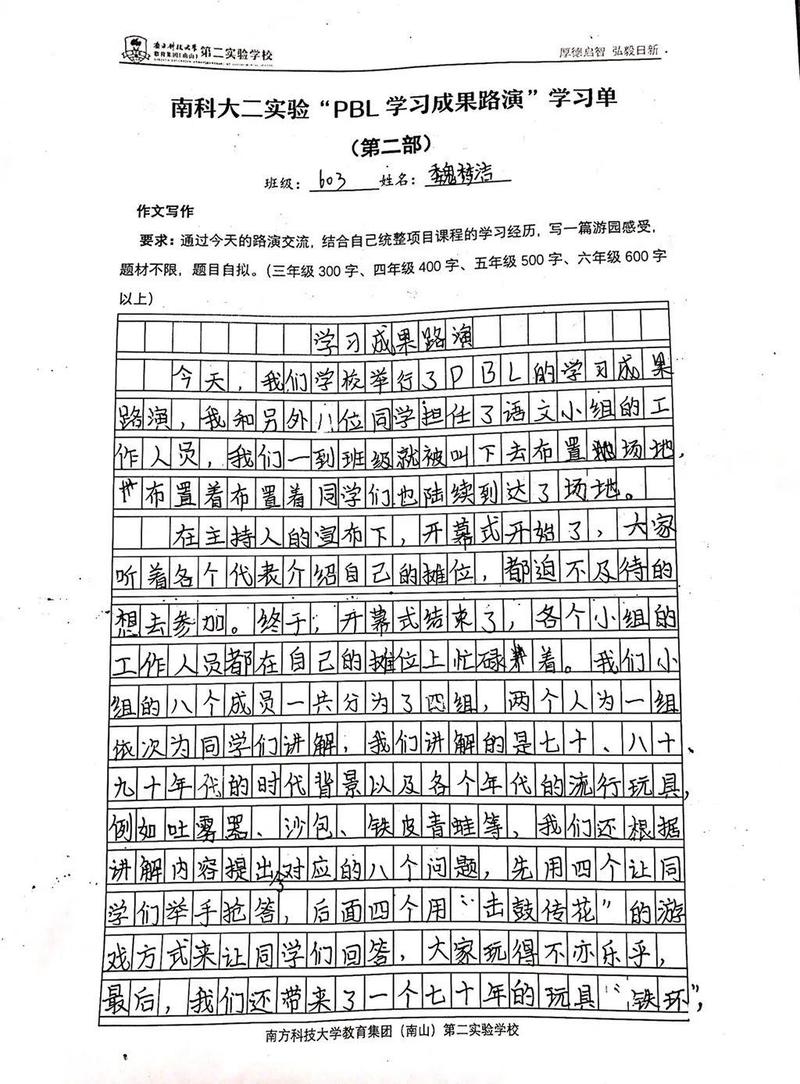 南方科技大学
教育集团(南山) 第二实验学校
厚德启智 弘毅日新
南科大二实验“PBL 学习成果路演”学习单
（第二部）
班级：603 姓名：魏梦洁
作文写作
要求：通过今天的路演交流，结合自己统整项目课程的学习经历，写一篇游园感受，
题材不限，题目自拟。（三年级 300 字、四年级 400 字、五年级 500 字、六年级 600 字
以上）
学习成果路演
今天，我们学校举行了PBL的学习成果
路演，我和另外八位同学担任了语文小组的工
作人员，我们一到班级就被叫下去布置场地，
布置着布置着同学们也陆续到达了场地。
在主持人的宣布下，开幕式开始了，大家
听着各个代表介绍自己的摊位，都迫不及待的
想去参加。终于，开幕式结束了，各个小组的
工作人员都在自己的摊位上忙碌着。我们小
组的八个成员一共分为了四组，两个人为一组
依次为同学们讲解，我们讲解的是七十、八十、
九十年代的时代背景以及各个年代的流行玩具，
例如吐雾器、沙包、铁皮青蛙等，我们还根据
讲解内容提出对应的八个问题，先用四个让同
学们举手抢答，后面四个用“击鼓传花”的游
戏方式来让同学们回答，大家玩得不亦乐乎，
最后，我们还带来了一个七十年的玩具“铁环”，
南方科技大学教育集团（南山）第二实验学校